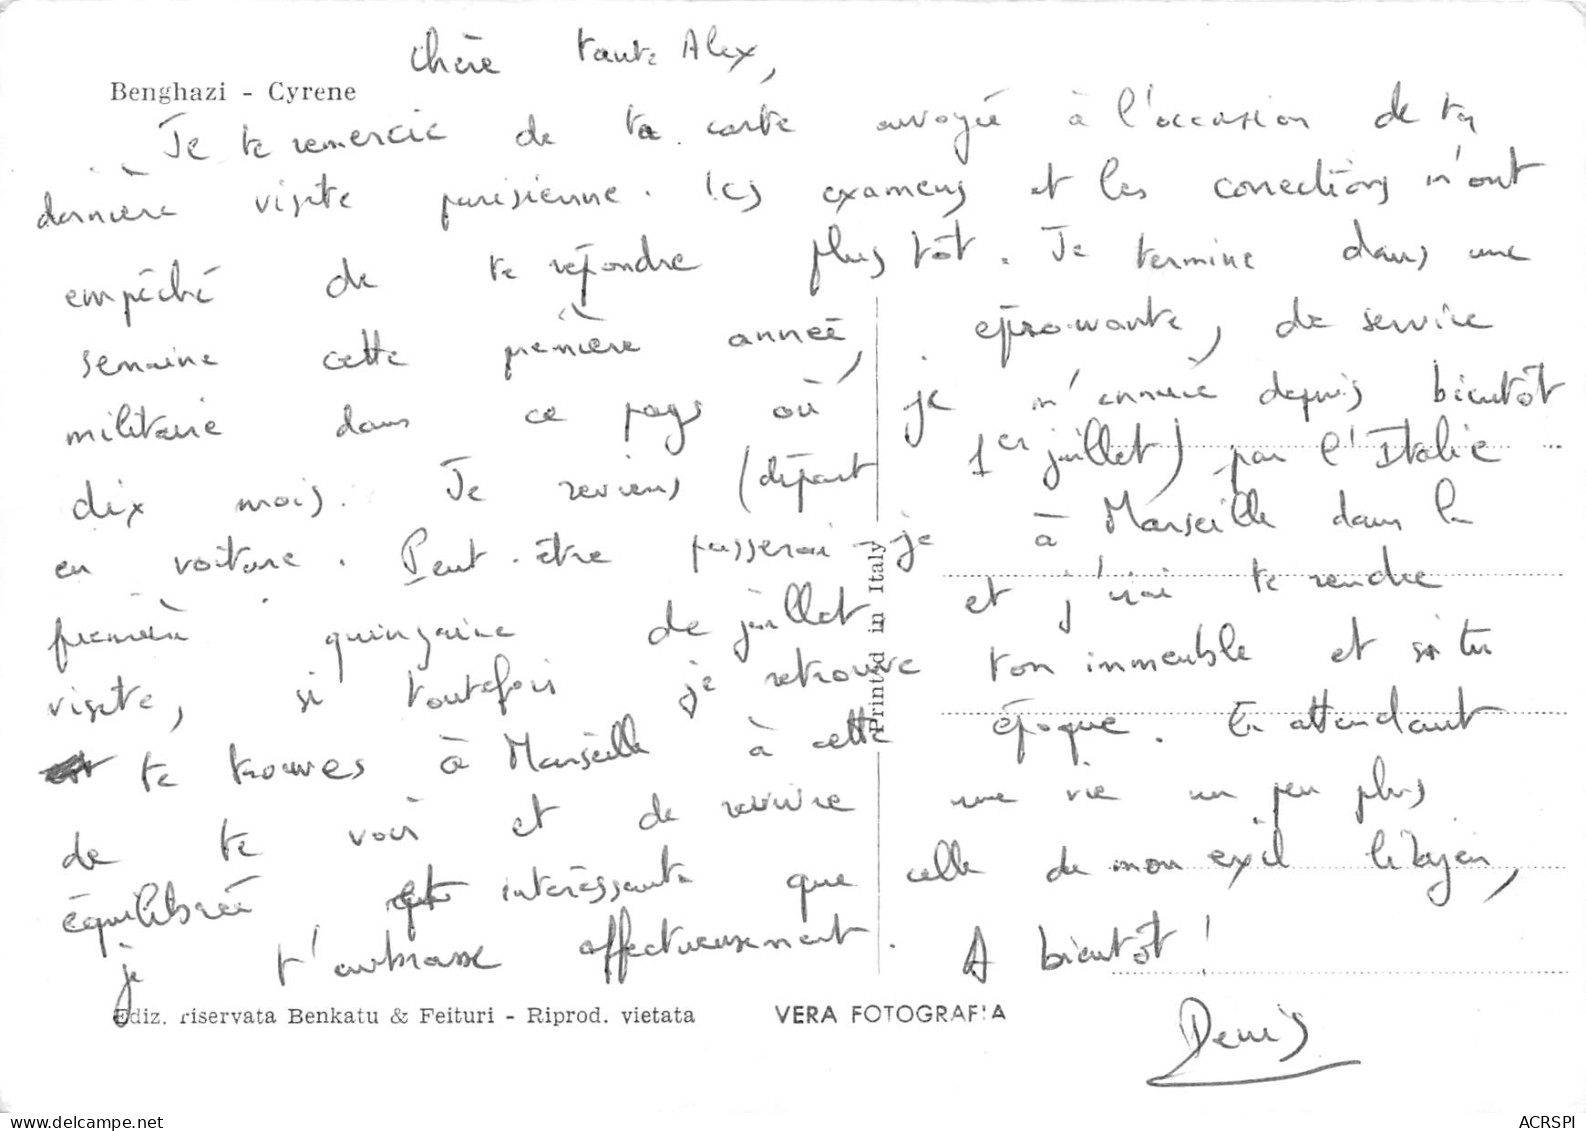 Chère tante Alex,
Benghazi - Cyrene
Je te remercie de ta carte envoyée à l'occasion de ta
dernière visite parisienne. Les examens et les corrections m'ont
empêché de te répondre plus tôt. Je termine dans une
semaine cette première année, éprouvante, de service
militaire dans ce pays où je m'ennuie depuis bientôt
dix mois. Je reviens (départ 1er juillet) par l'Italie
en voiture. Peut-être passerai-je à Marseille dans la
première quinzaine de juillet et j'irai te rendre
visite, si toutefois je retrouve ton immeuble et si tu
te trouves à Marseille à cette époque. En attendant
de te voir et de revivre une vie un peu plus
équilibrée et intéressante que celle de mon exil libyen,
je t'embrasse affectueusement. A bientôt !
Denis
Printed in Italy
Ediz. riservata Benkatu & Feituri - Riprod. vietata
VERA FOTOGRAFIA
ACRSPI